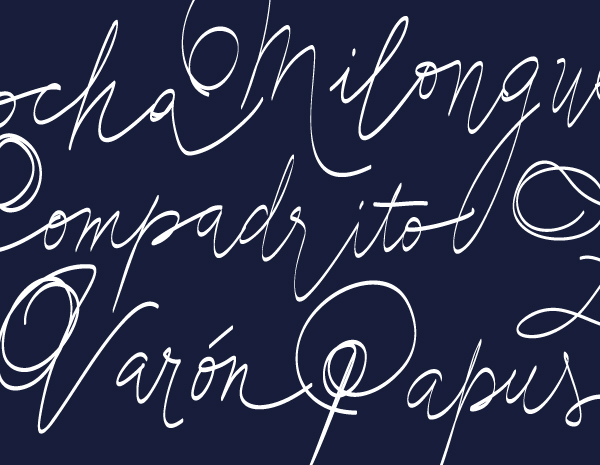 ocha Milongue
Compadrito
Varón Papus